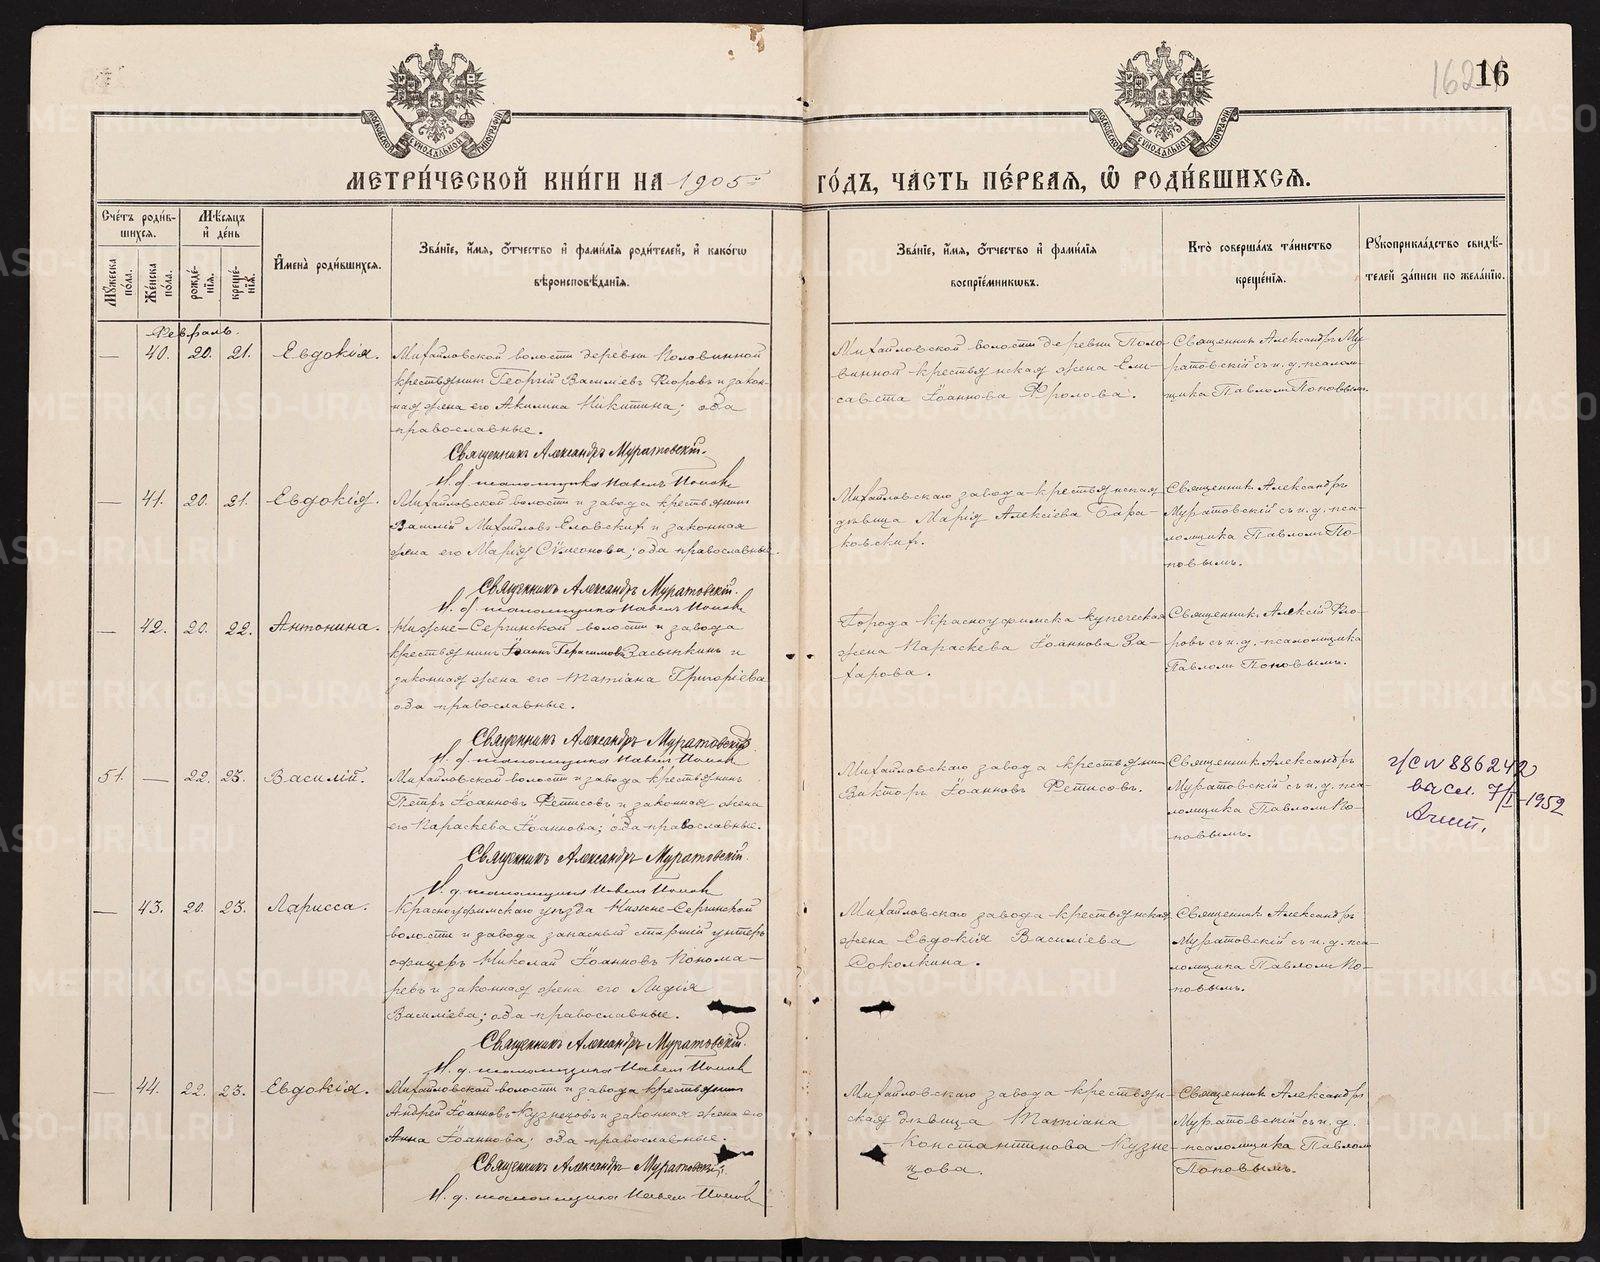 16
162
МОСКОВСКОЙ СѴНОДАЛЬНОЙ ТИПОГРАФІИ
МОСКОВСКОЙ СѴНОДАЛЬНОЙ ТИПОГРАФІИ
МЕТРИ́ЧЕСКОЙ КНИ́ГИ НА 1905й ГО́ДЪ, ЧА́СТЬ ПЕ́РВАЯ, Ѡ҆ РОДИ́ВШИХСЯ.
Сче́тъ роди́в-
шихся.
Мꙋжеска по́ла.
Же́нска по́ла.
Мѣ́сяцъ
и҆ де́нь
рожде́-
нїя.
креще́-
нїя.
И҆мена̀ роди́вшихся.
Зва́нїе, и҆́мя, ѻ҆́тчество и҆ фами́лїя роди́телей, и҆ како́гѡ
вѣроисповѣ́данїя.
Зва́нїе, и҆́мя, ѻ҆́тчество и҆ фами́лїя
воспрїе́мникѡвъ.
Кто̀ соверша́лъ та́инство
креще́нїя.
Рꙋкоприкла́дство свидѣ́-
телей за́писи по жела́нїю.
Февраль.
— 40. 20. 21. Евдокія.
Михайловской волости деревни Половинной
крестьянинъ Георгій Васильевъ Ѳёровъ и закон-
ная жена его Акилина Никитина; оба
православные.
Священникъ Александръ Муратовскій.
И. д. псаломщика Павелъ Поповъ
Михайловской волости деревни Поло-
винной крестьянская жена Ели-
савета Іоаннова Фролова.
Священникъ Александръ Му-
ратовскій съ и. д. псалом-
щика Павломъ Поповымъ.
— 41. 20. 21. Евдокія.
Михайловской волости и завода крестьянинъ
Василій Михайловъ Еловскихъ и законная
жена его Марія Сѵмеонова; оба православные.
Священникъ Александръ Муратовскій.
И. д. псаломщика Павелъ Поповъ
Михайловскаго завода крестьянская
дѣвица Марія Алексіева Бара-
ковскихъ.
Священникъ Александръ
Муратовскій съ и. д. пса-
ломщика Павломъ По-
повымъ.
— 42. 20. 22. Антонина.
Нижне-Сергинской волости и завода
крестьянинъ Іоаннъ Герасимовъ Засыпкинъ и
законная жена его Татіана Григоріева
оба православные.
Священникъ Александръ Муратовскій
И. д. псаломщика Павелъ Поповъ
Города Красноуфимска купеческая
жена Параскева Іоаннова За-
харова.
Священникъ Алексій
съ и. д. псаломщика
Павломъ Поповымъ.
51. — 22. 23. Василій.
Михайловской волости и завода крестьянинъ
Петръ Іоанновъ Фетисовъ и законная жена
его Параскева Іоаннова; оба православные.
Священникъ Александръ Муратовскій.
И. д. псаломщика Павелъ Поповъ
Михайловскаго завода крестьянинъ
Викторъ Іоанновъ Фетисовъ.
Священникъ Александръ
Муратовскій съ и. д. пса-
ломщика Павломъ По-
повымъ.
г/с № 886242
7/I-1952
— 43. 20. 23. Ларисса.
Красноуфимскаго уѣзда Нижне-Сергинской
волости и завода запасный старшій унтеръ-
офицеръ Николай Іоанновъ Понома-
ревъ и законная жена его Лидія
Васильева; оба православные.
Священникъ Александръ Муратовскій.
И. д. псаломщика Павелъ Поповъ
Михайловскаго завода крестьянская
жена Евдокія Васильева
Соколкина.
Священникъ Александръ
Муратовскій съ и. д. пса-
ломщика Павломъ По-
повымъ.
— 44. 22. 23. Евдокія.
Михайловской волости и завода крестьянинъ
Андрей Іоанновъ Кузнецовъ и законная жена его
Анна Іоаннова; оба православные.
Священникъ Александръ Муратовскій.
И. д. псаломщика Павелъ Поповъ
Михайловскаго завода крестьян-
ская дѣвица Татіана
Константинова Кузне-
цова.
Священникъ Александръ
Муратовскій съ и. д.
псаломщика Павломъ
Поповымъ.
METRIKI.GASO-URAL.RU